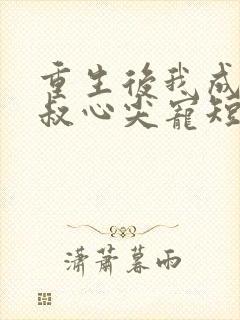 重生後我成
叔心尖寵短
瀟蕭暮雨